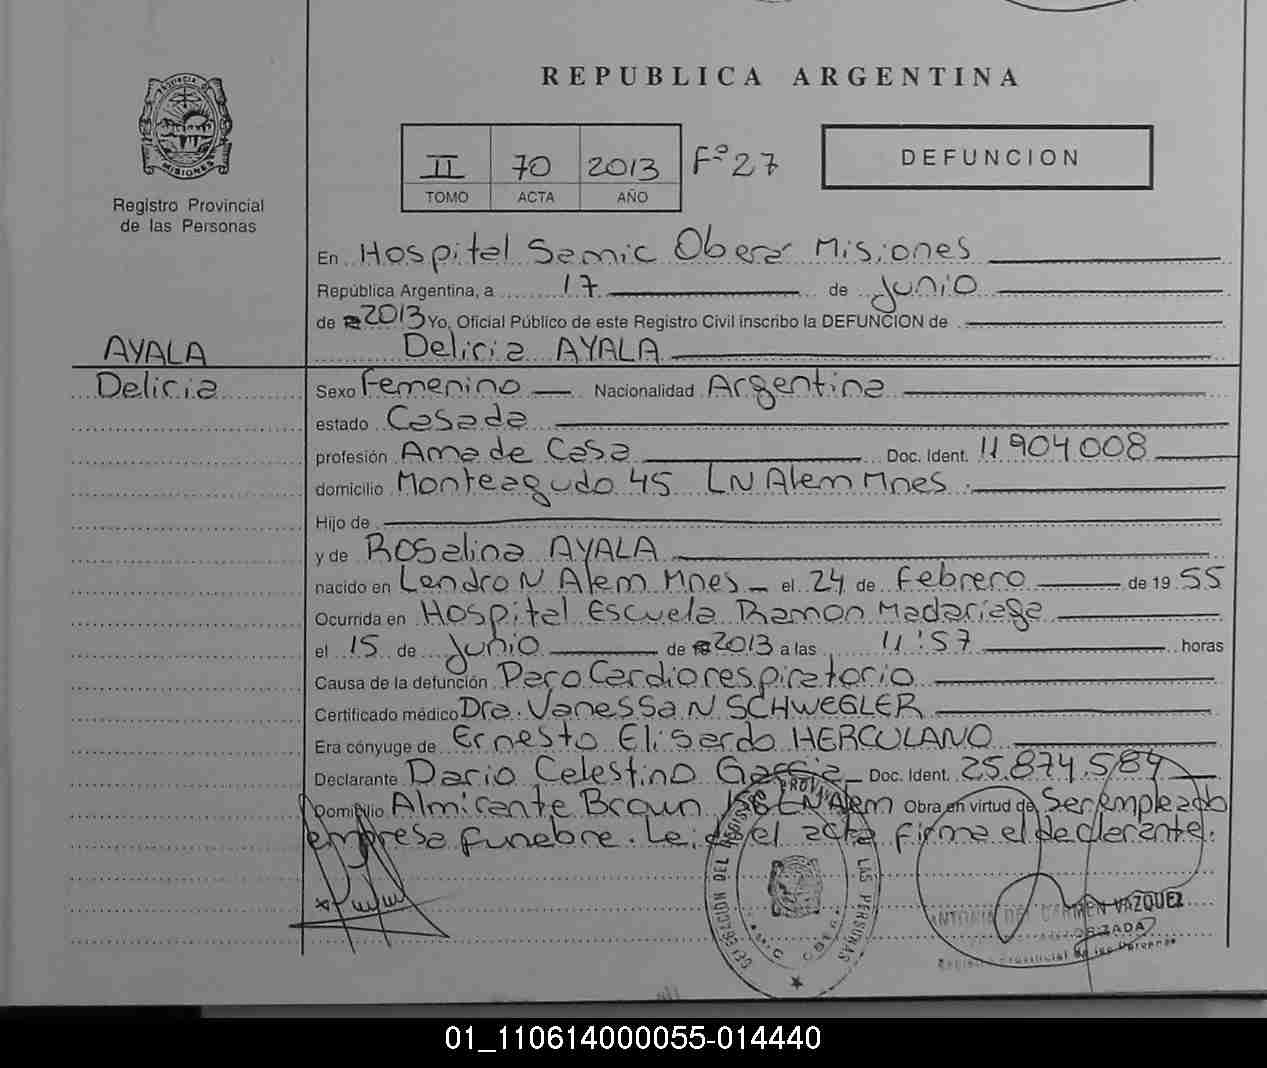 REPUBLICA ARGENTINA
PROVINCIA DE MISIONES
Registro Provincial
de las Personas
II 70 2013 Fº 27
TOMO ACTA AÑO
DEFUNCION
En Hospital Samic Obera Misiones
República Argentina, a 17 de Junio
de 2013 Yo, Oficial Público de este Registro Civil inscribo la DEFUNCION de
AYALA
Delicia AYALA
Delicia
Sexo Femenino Nacionalidad Argentina
estado Casada
profesión Ama de Casa Doc. Ident. 11904.008
domicilio Monteagudo 45 LN Alem Mnes.
Hijo de
y de Rosalina AYALA
nacido en Lendro N Alem Mnes el 24 de Febrero de 1955
Ocurrida en Hospital Escuela Ramon Madariaga
el 15 de Junio de 2013 a las 11:57 horas
Causa de la defunción Paro Cardiorespiratorio
Certificado médico Dra. Vanessa N SCHWEGLER
Era cónyuge de Ernesto Elisardo HERCULANO
Declarante Dario Celestino Garcia Doc. Ident. 25.874.584
Domicilio Almirante Broun LN Alem Obra en virtud de Ser empleado
empresa funebre. Leida el acta firma el declarante.
DEL REGISTRO PROVINCIAL DE LAS PERSONAS
ANTONIA DEL CARMEN VAZQUEZ
Registro Provincial de las Personas
01_110614000055-014440